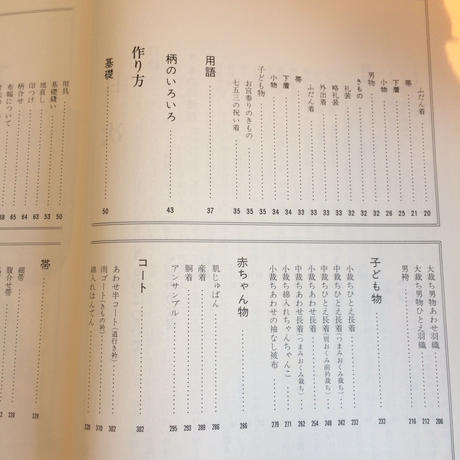 ふだん着 20
帯 21
下着 25
小物 26
男物 32
きもの 32
礼装 32
略礼装 33
外出着 33
ふだん着 33
帯 33
下着 34
小物 34
子ども物 35
お宮参りのきもの 35
七五三の祝い着 35
用語 37
柄のいろいろ 43
作り方
基礎 50
用具 50
基礎縫い 53
地直し 63
印つけ 64
柄合せ 65
布幅について 68
大裁ち男物あわせ羽織 206
大裁ち男物ひとえ羽織 212
男袴 214
子ども物 232
小裁ちひとえ長着 232
中裁ちひとえ長着(つまみおくみ裁ち) 242
中裁ちひとえ長着(別おくみ前衿裁ち) 248
小裁ちあわせ長着 254
中裁ちあわせ長着(つまみおくみ裁ち) 262
小裁ち綿入れちゃんちゃんこ 271
小裁ちあわせの袖なし被布 270
赤ちゃん物 286
肌じゅばん 286
産着 288
胴着 293
アンサンブル 295
コート 302
あわせ半コート(道行き衿) 302
雨ゴート(きもの衿) 310
綿入れはんてん
帯
細帯
腹合せ帯